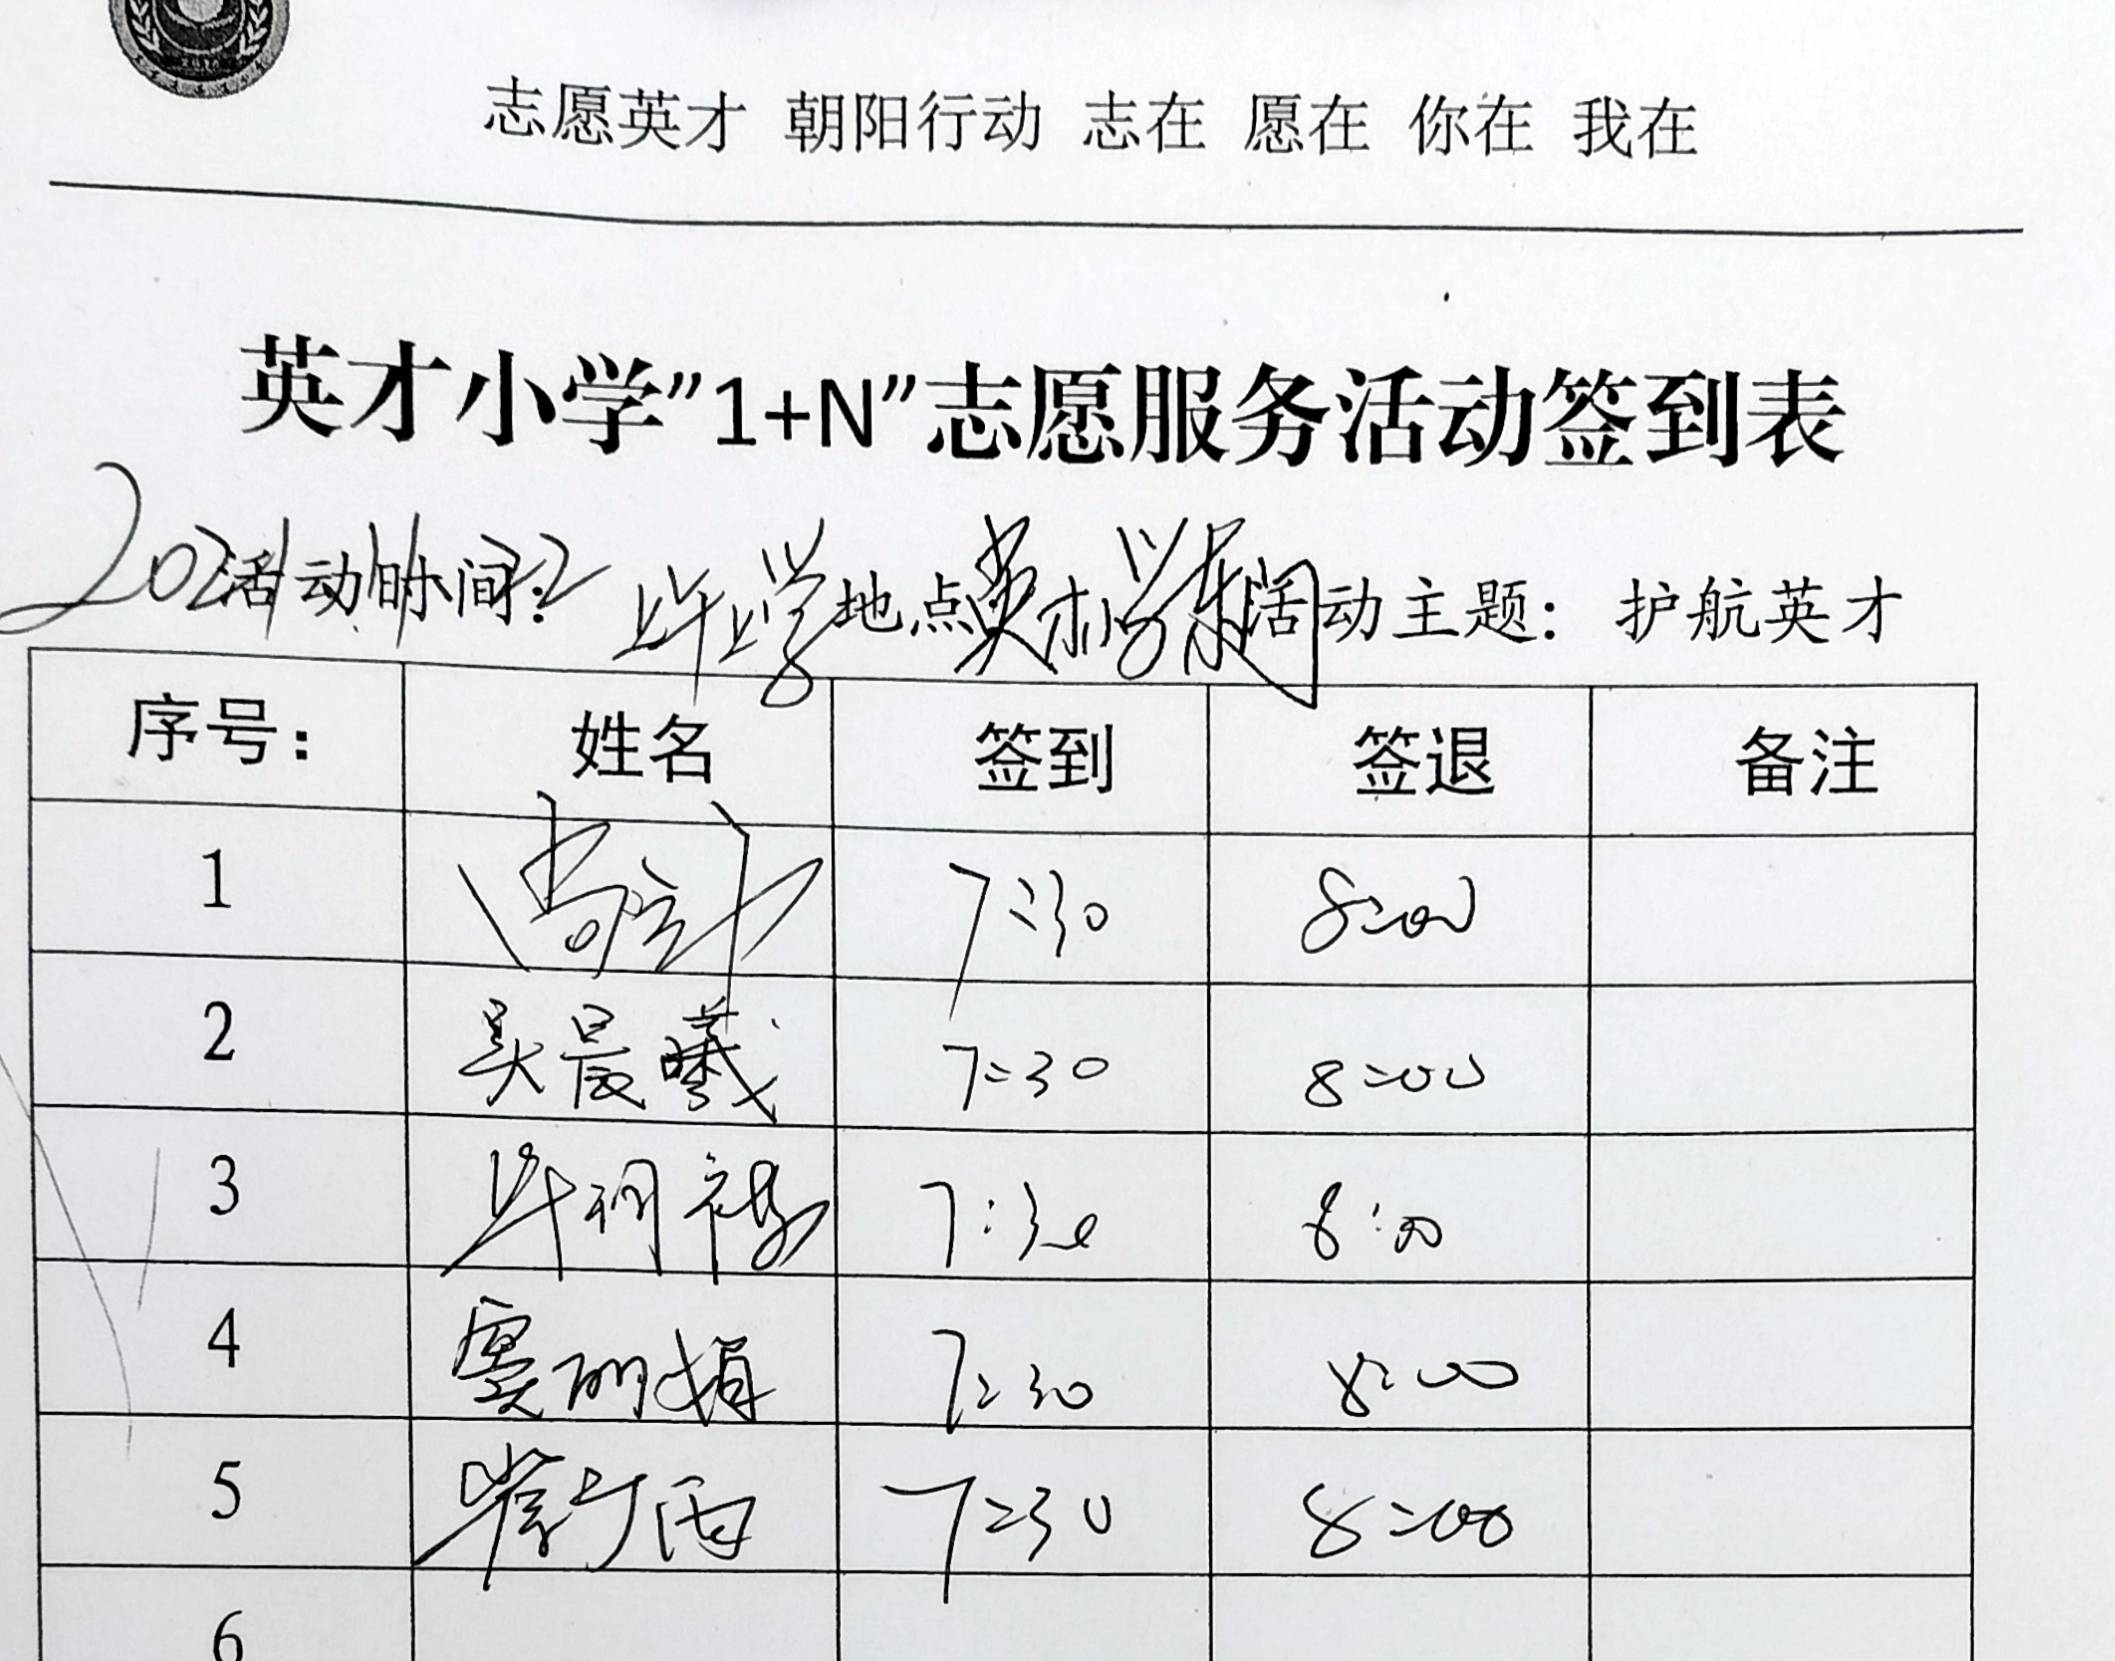 志愿英才 朝阳行动 志在 愿在 你在 我在
英才小学"1+N"志愿服务活动签到表
活动时间: 上午上学 地点 英才小学东门 活动主题: 护航英才
序号: 姓名 签到 签退 备注
1 7:30 8:00
2 吴晨曦 7:30 8:00
3 7:30 8:00
4 窦丽娟 7:30 8:00
5 7:30 8:00
6